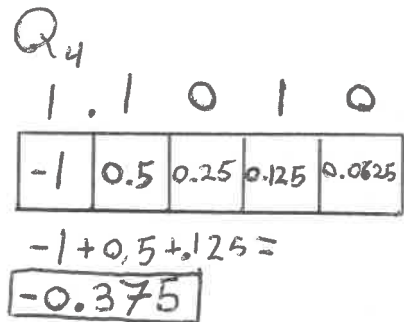 Q4
1 . 1 0 1 0
-1 0.5 0.25 0.125 0.0625
-1+0.5+.125=
-0.375